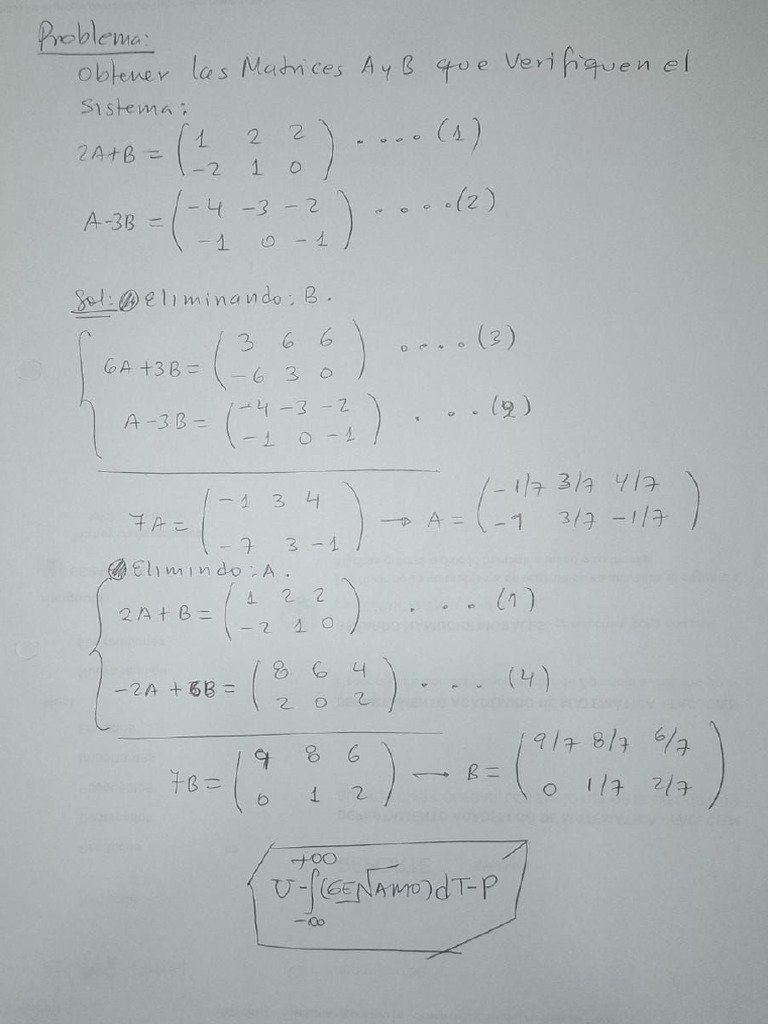 Problema:
Obtener las Matrices A y B que Verifiquen el
Sistema:
2A+B = ( 1 2 2 ) .... (1)
( -2 1 0 )
A-3B = ( -4 -3 -2 ) .... (2)
( -1 0 -1 )
Sol: Eliminando: B.
6A+3B = ( 3 6 6 ) .... (3)
( -6 3 0 )
A-3B = ( -4 -3 -2 ) ... (2)
( -1 0 -1 )
7A = ( -1 3 4 ) → A = ( -1/7 3/7 4/7 )
( -7 3 -1 ) ( -1 3/7 -1/7 )
Elimindo: A.
2A+B = ( 1 2 2 ) ... (1)
( -2 1 0 )
-2A+6B = ( 8 6 4 ) ... (4)
( 2 0 2 )
7B = ( 9 8 6 ) → B = ( 9/7 8/7 6/7 )
( 0 1 2 ) ( 0 1/7 2/7 )
+∞
U-∫(SEN√AMO)dT-P
-∞